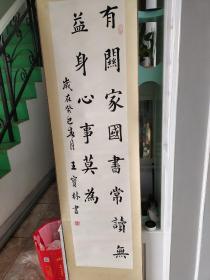 有關家國書常讀無
益身心事莫為
歲在癸巳春月
王寶林書